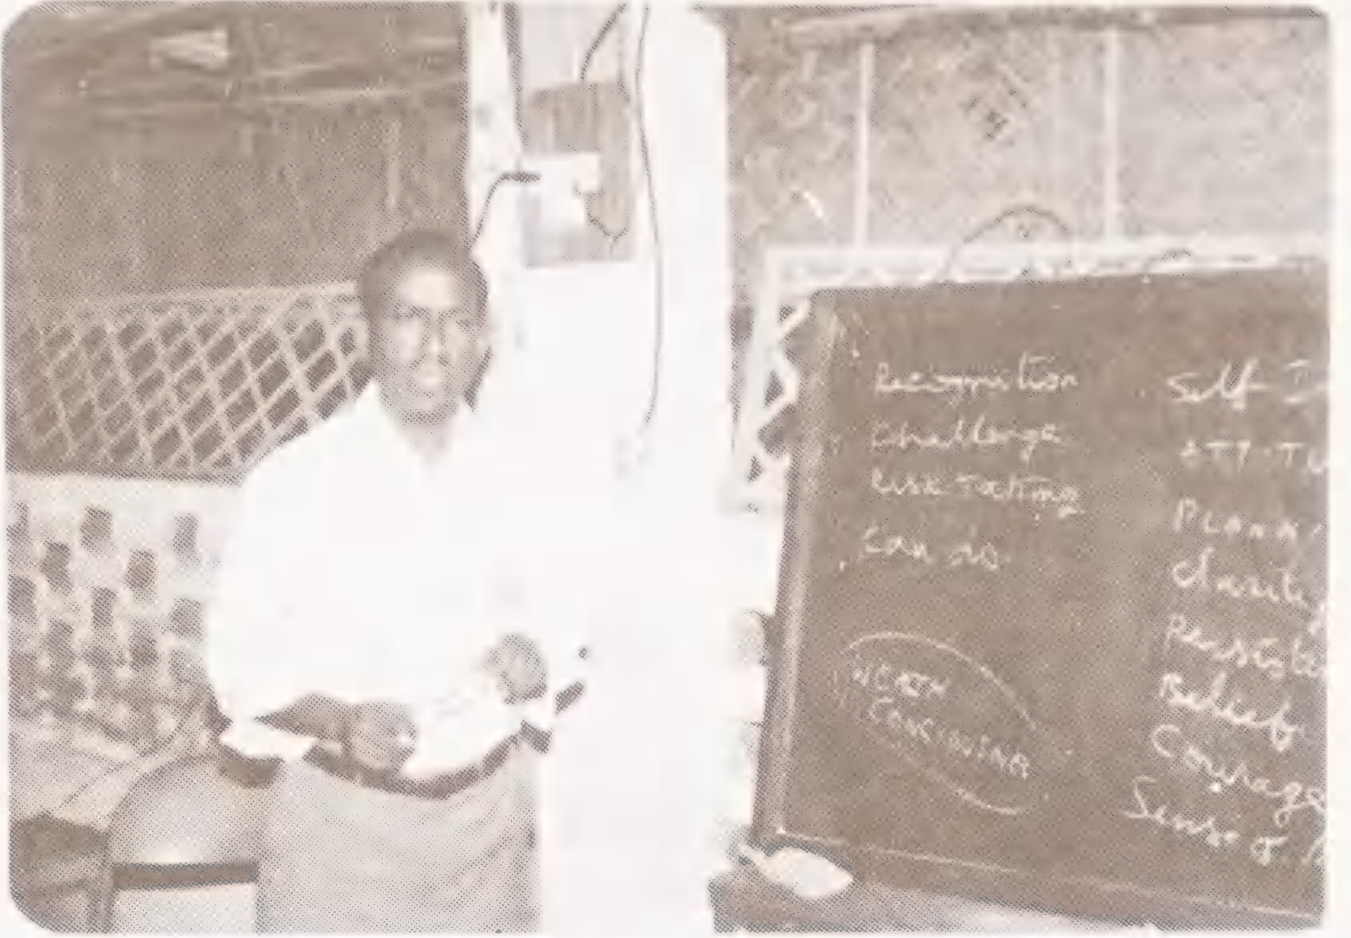 Recognition
Challenge
Risk Taking
Can do
Self I
ATTITU
PLANN
Charity
Persiste
Belief
Courage
Sense of